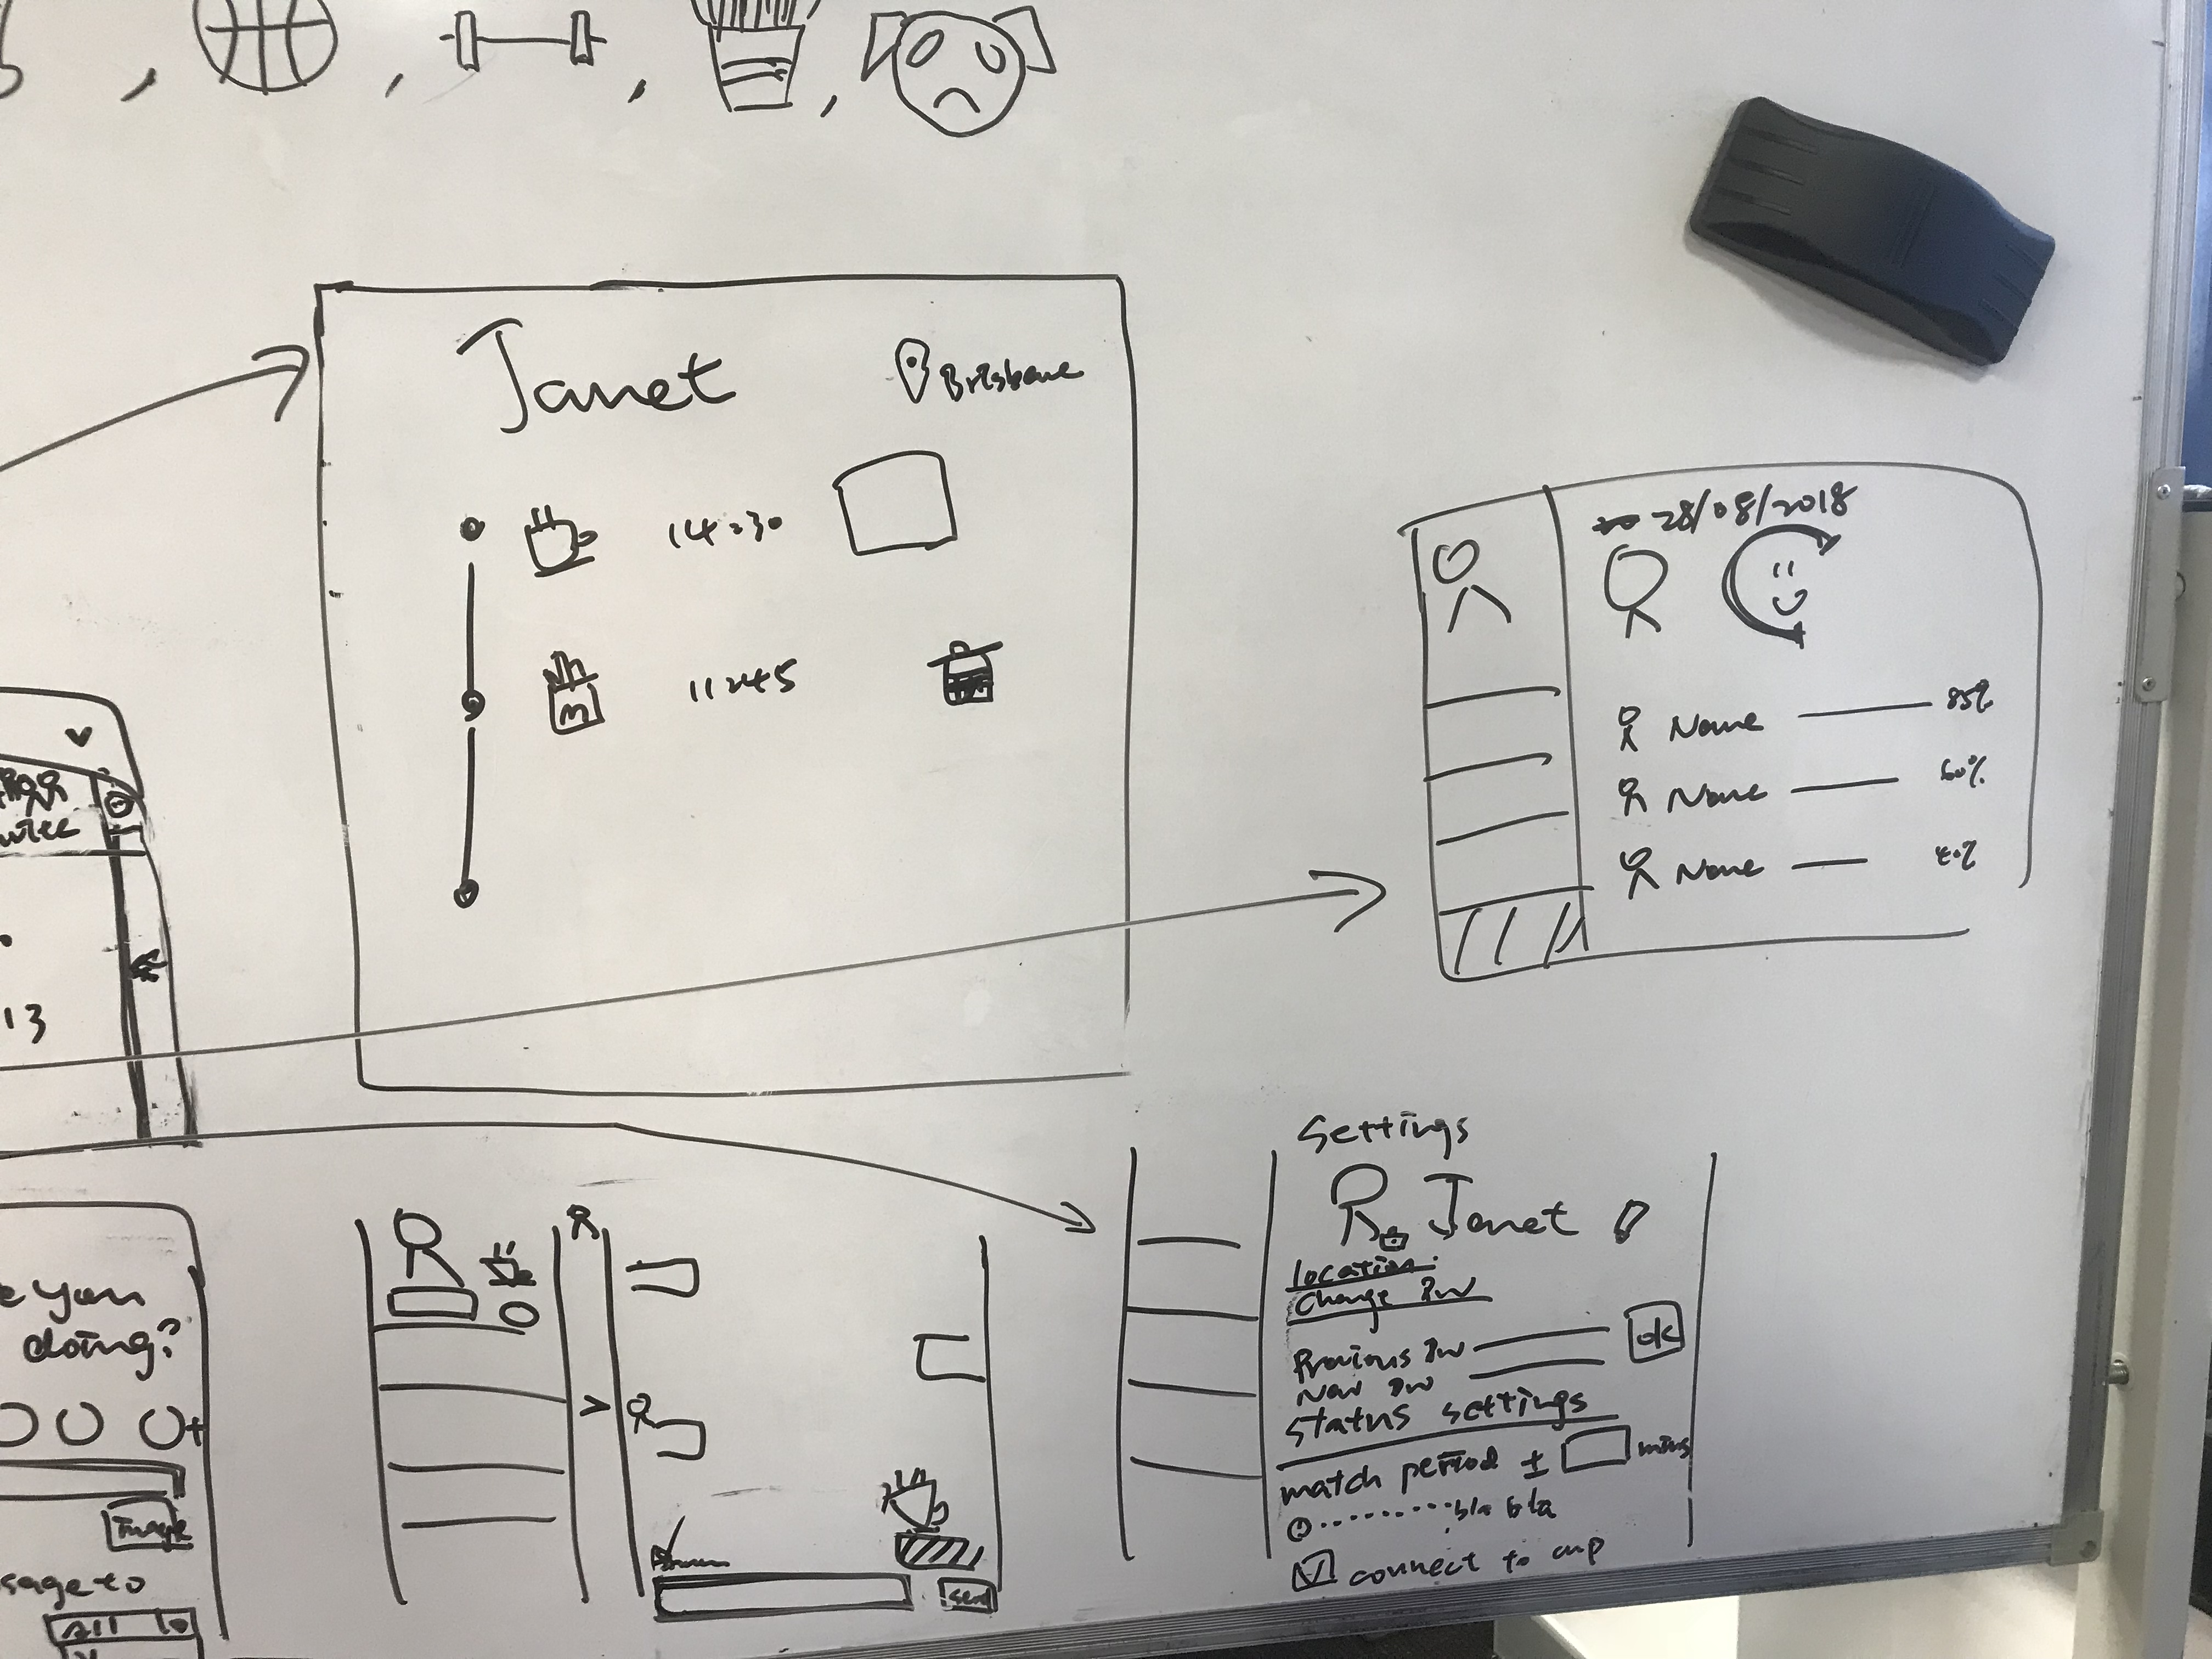 Janet
Brisbane
14:30
11:45
28/08/2018
Name 85%
Name 60%
Name 40%
13
e you
doing?
image
sage to
All
send
Settings
Janet
location:
Change Pw
Previous Pw
New Pw
ok
Status settings
match period ± mins
bla bla
connect to cup